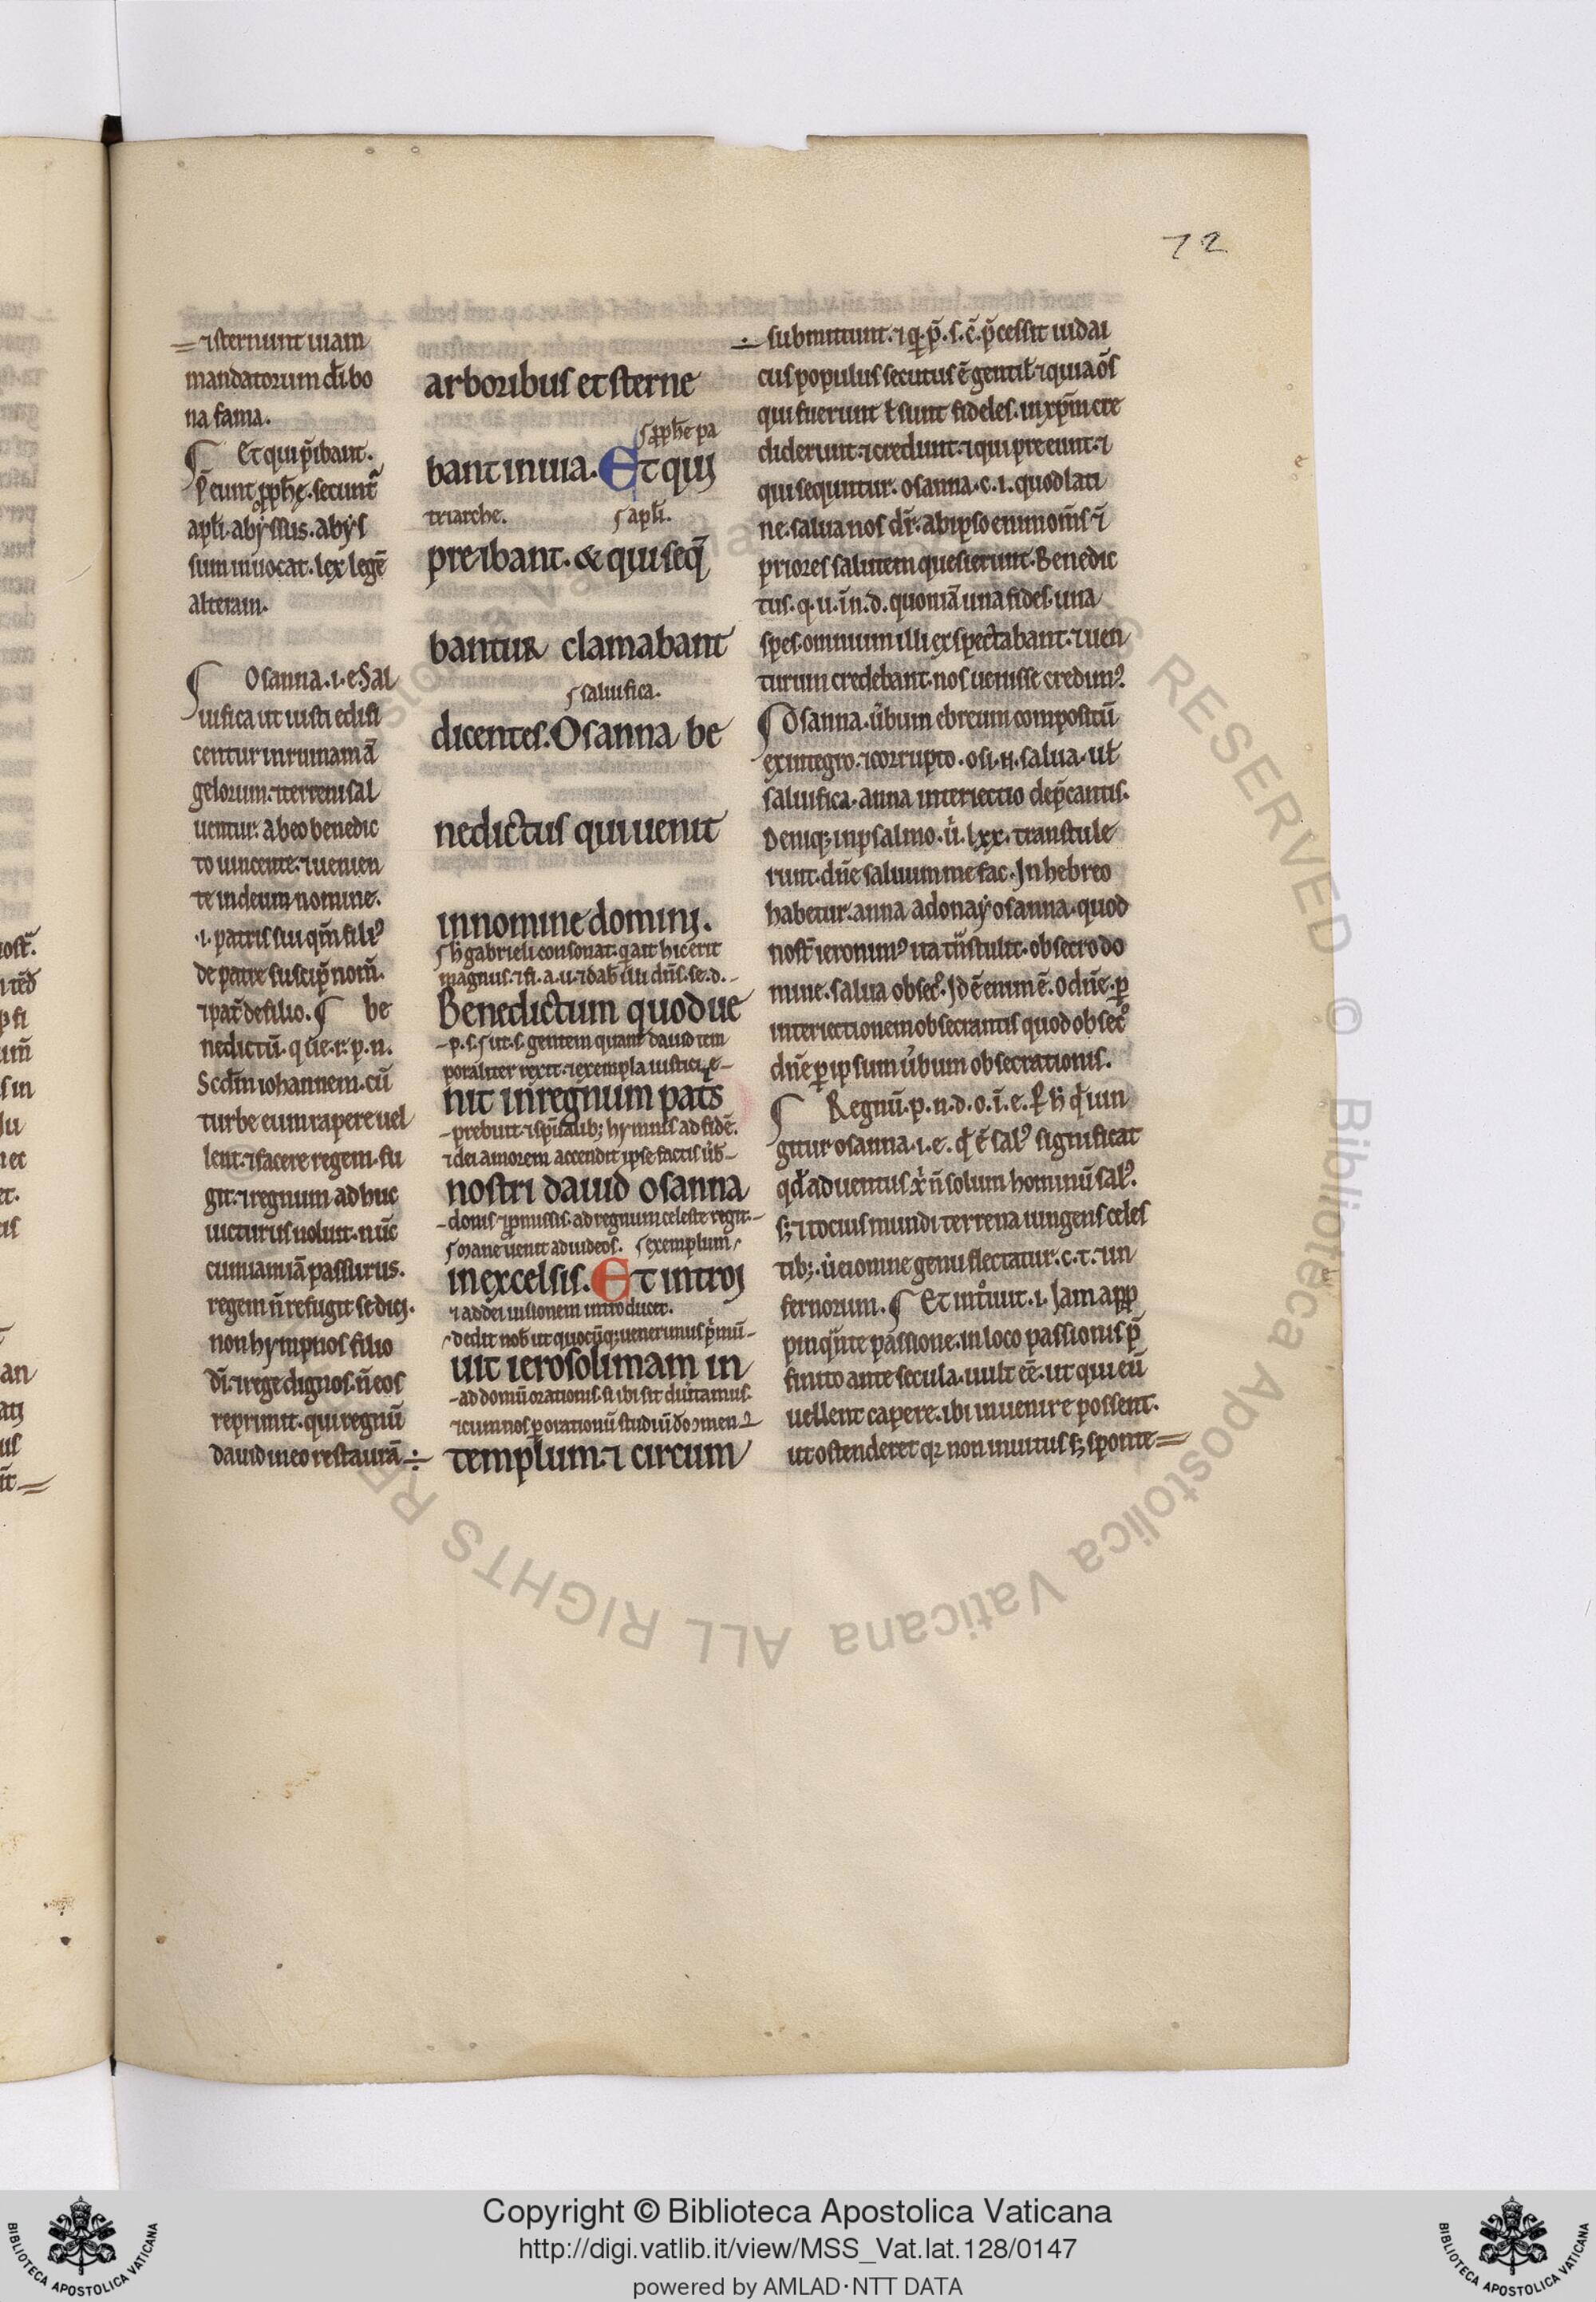 72
⁊ sternunt uiam
mandatorum dī bo
na fama.
Et qui p̄ibant.
P̄eunt ꝓph̄ę. secunt̄
apl̄i. abẏssus. abẏs
sum inuocat. lex legē
alteram.
Osanna .i.e. Sal
uifica ut iusti edifi
centur in ruinam ā
gelorum. ⁊ terreni sal
uentur. Ab eo benedic
to uincente. ⁊ uenien
te in deum nomine.
.i. patris sui qm̄ filiꝰ
de patre suscip̄ nom̄.
⁊ pat̄ de filio. be
nedictū. q ue. r. p. n.
Scd̄m iohannem. cū
turbe eum rapere uel
lent. ⁊ facere regem. fu
git. ⁊ regnum adhuc
uicturus noluit. nūc
cum iam iā passurus.
regem n̄ refugit se dici.
non hympnos filio
dī. ⁊ rege dignos. n̄ eos
reprimit. qui regnū
dauid in eo restaurā÷
arboribus et sterne
ꝓph̄e pa
bant in uia. Et qui
triarche. apl̄i.
preibant. & qui seq̄
bantur clamabant
saluifica.
dicentes. Osanna be
nedictus qui uenit
in nomine domini.
h̄ gabrieli consonat. q ait hic erit
magnus. ⁊ fi. a. u. ⁊ dab̄ illi dn̄s. se. d.
Benedictum quod ue
p. s. ut. s. gentem quam dauid tem
poraliter rexit. ⁊ exempla iusticię
nit in regnum pat̄s
prebuit. ⁊ sp̄ualib; hymnis ad fidē.
⁊ dei amorem accendit ipse factis ūb̄
nostri dauid osanna
donis ⁊ ꝓmissis. ad regnum celeste regit.
mane uenit ad iudeos. exemplum
in excelsis. Et introi
⁊ ad dei uisionem introducet.
dedit nob̄ ut quocūq; uenerimus p̄mū
uit ierosolimam in
ad domū orationis. si ibi sit diuertamus.
⁊ cum nos ꝑ orationū studiū
templum. ⁊ circum
submittunt. ⁊ q̄. p̄. s. c̄. p̄cessit iudai
cus populus secutus ē gentil̄. ⁊ quia om̄s
qui fuerunt ł sunt fideles. in xp̄m cre
diderunt. ⁊ credunt. ⁊ qui preeunt. ⁊
qui sequntur. osanna. c. i. quod lati
ne. salua nos dr̄. ab ipso enim om̄s ⁊
priores salutem quesierunt. Benedic
tus. q. u. in. d. quoniā una fides. una
spes. omnium illi exspectabant. ⁊ uen
turum credebant. nos uenisse credimꝰ.
Osanna. ūbum ebreum compositū
ex integro. ⁊ corrupto. osi. n̄. salua. ul̄
saluifica. anna interiectio dep̄cantis.
Deniq; in psalmo. ū. lxx. transtule
runt. dn̄e saluum me fac. In hebreo
habetur. anna adonaẏ osanna. quod
nost̄ ieronimꝰ ita t̄nstulit. obsecro do
mine. salua obsecͦ. Id ē enim ē. o dn̄e. ꝑ
interiectionem obsecrantis quod obsecͦ
dn̄e ꝑ ipsum ūbum obsecrationis.
Regnū. p. n. d. o. i. e. Per h̄ qd̄ iun
gitur osanna. i. e. qd̄ ē salꝰ significat
qd̄ aduentus x̄ n̄ solum hominū salꝰ.
s; ⁊ tocius mundi terrena iungens celes
tib;. ū ei omne genu flectatur. c. t. ⁊ in
fernorum. Et intͦiuit. i. Iam app
pinqnte passione. in loco passionis p̄
finito ante secula. uult eē. ut qui eū
uellent capere. ibi inuenire possent.
ut ostenderet qr non inuitus s; sponte
© Biblioteca Apostolica Vaticana ALL RIGHTS RESERVED
Copyright © Biblioteca Apostolica Vaticana
http://digi.vatlib.it/view/MSS_Vat.lat.128/0147
powered by AMLAD·NTT DATA
BIBLIOTECA APOSTOLICA VATICANA
BIBLIOTECA APOSTOLICA VATICANA